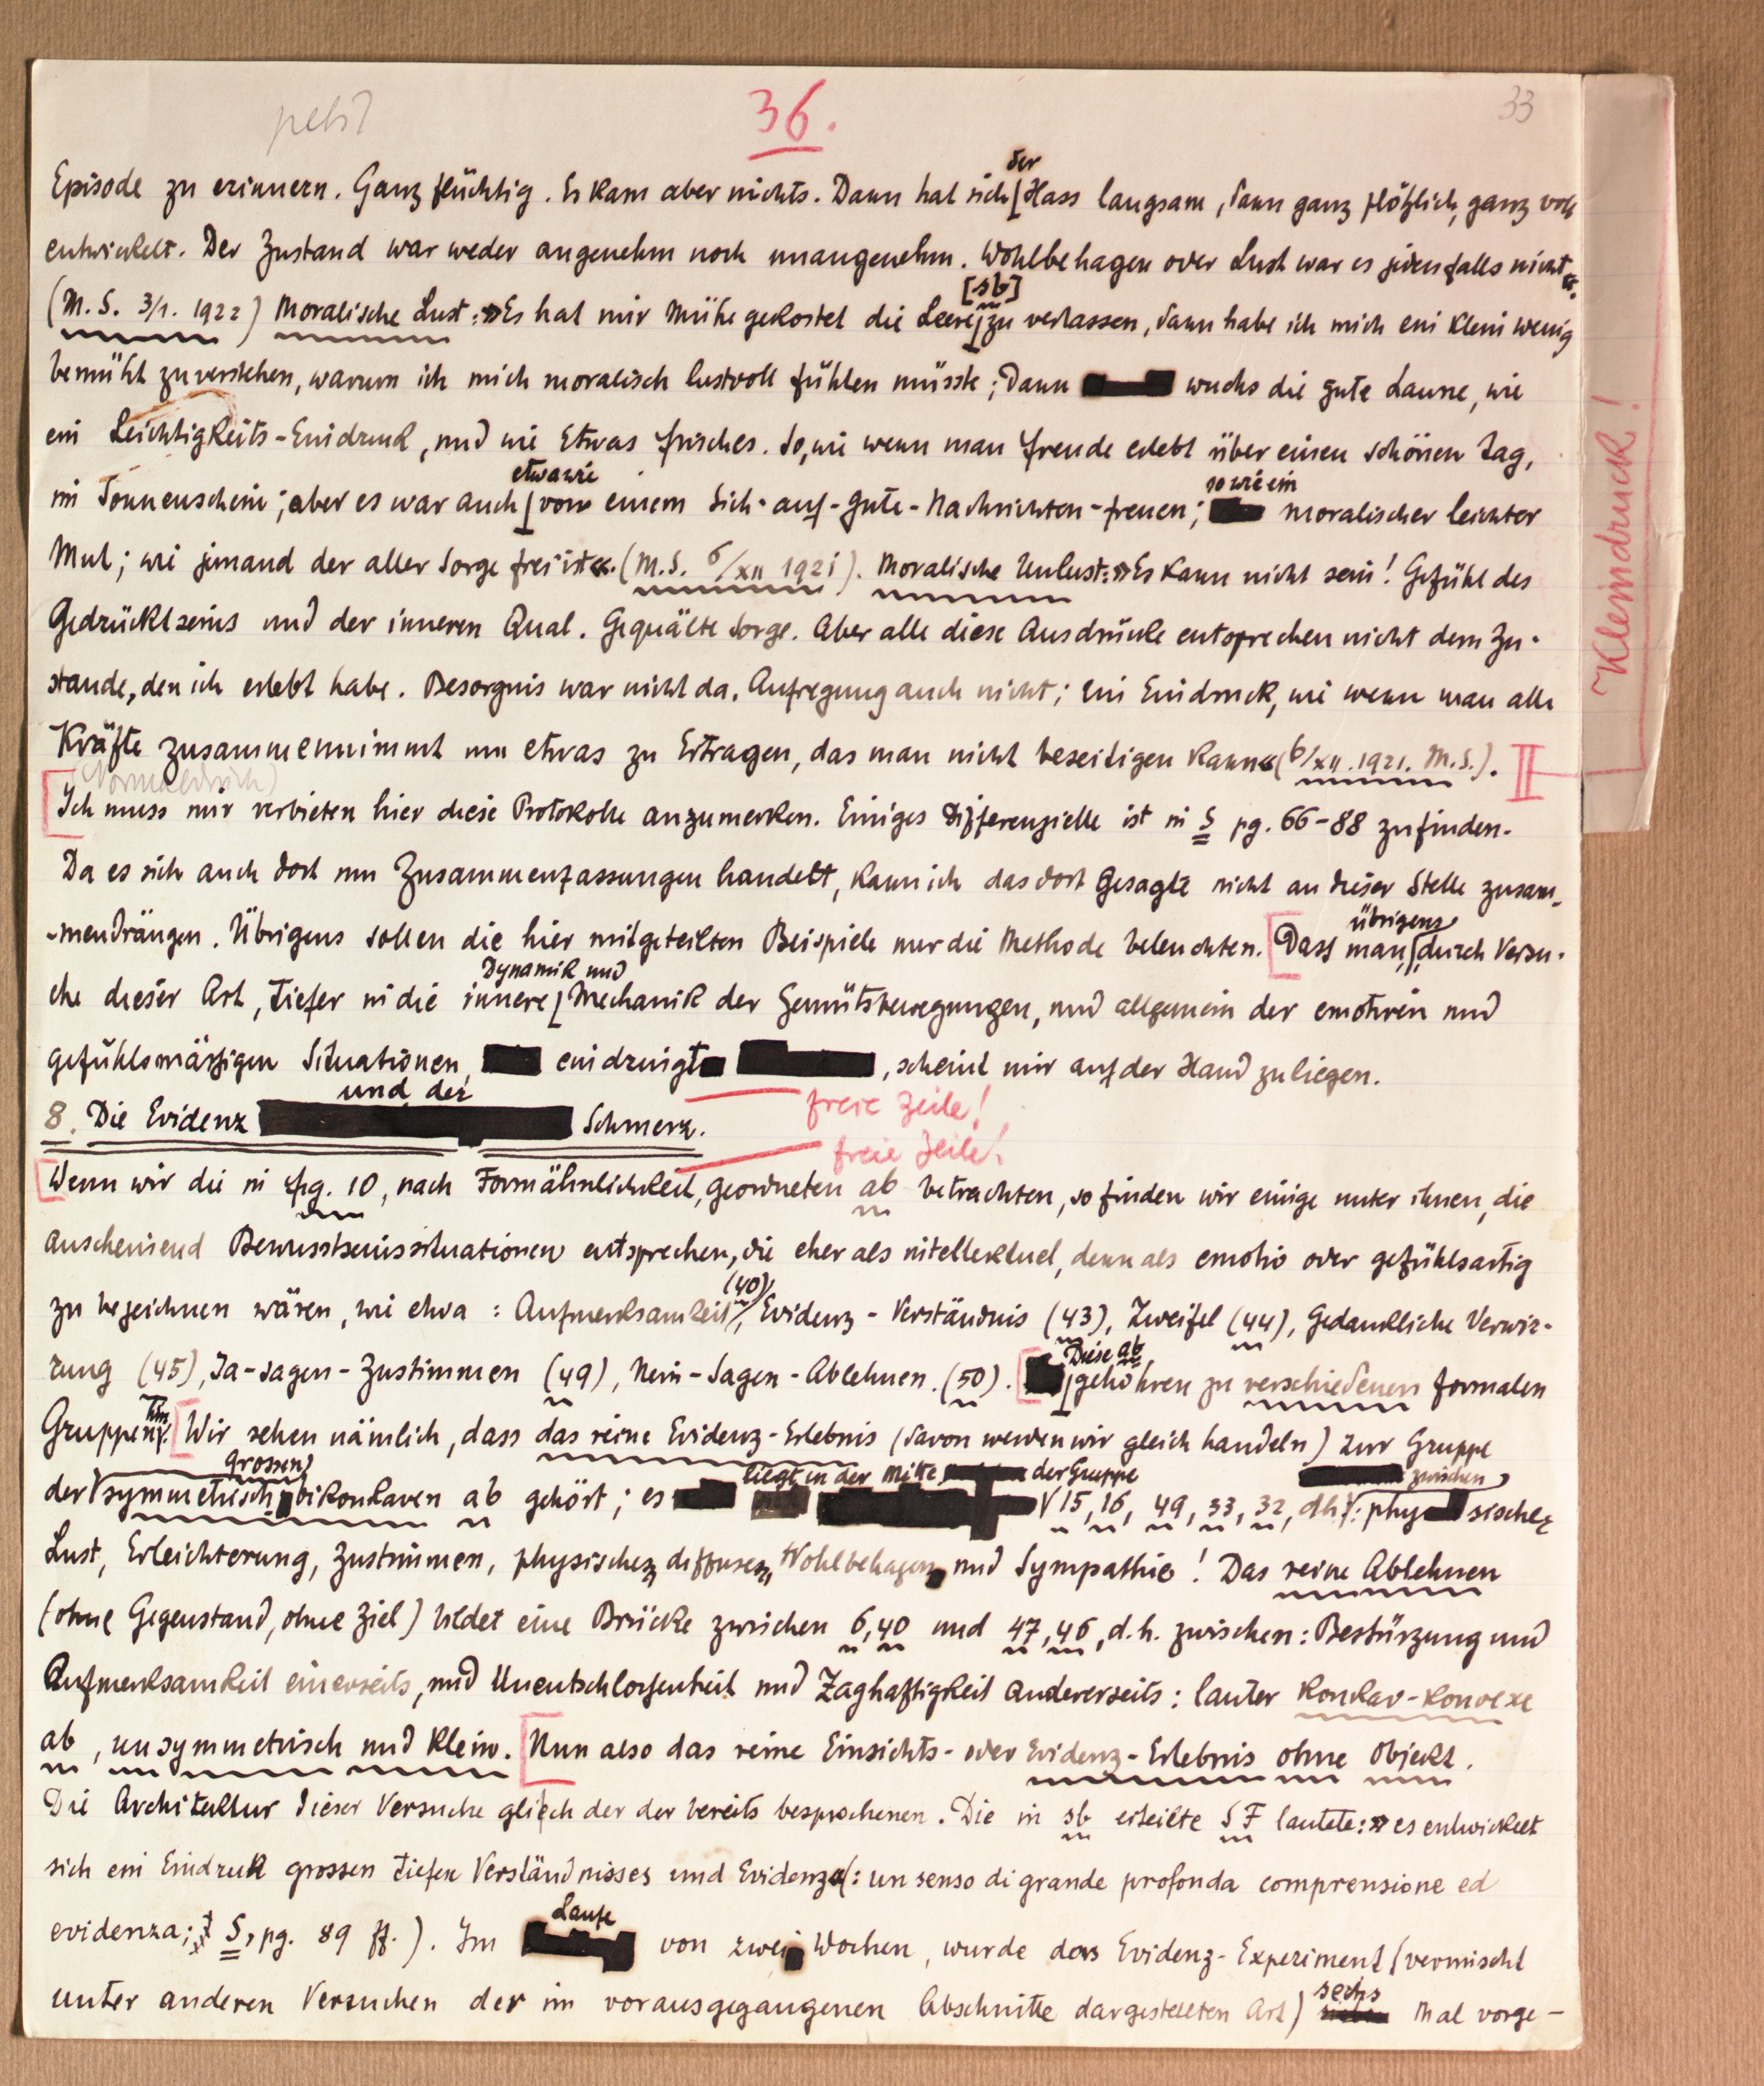 36.
33
der
Episode zu erinnern. Ganz flüchtig. Es kam aber nichts. Dann hat sich Hass langsam, dann ganz plötzlich, ganz voll
entwickelt. Der Zustand war weder angenehm noch unangenehm. Wohlbehagen oder Lust war es jedenfalls nicht«.
[sb]
(M.S. 3/1. 1922) Moralische Lust: »Es hat mir Mühe gekostet die Leere zu verlassen, dann habe ich mich ein klein wenig
bemüht zu verstehen, warum ich mich moralisch lustvoll fühlen müsste; Dann wuchs die gute Laune, wie
ein Leichtigkeits-Eindruck, und wie Etwas frisches. So, wie wenn man Freude erlebt über einen schönen Tag,
etwa wie so wie ein
im Sonnenschein; aber es war auch von einem Sich-auf-gute-Nachrichten-freuen; moralischer leichter
Mut; wie jemand der aller Sorge frei ist«. (M.S. 6/XII 1921). Moralische Unlust: »Es kann nicht sein! Gefühl des
Gedrücktseins und der inneren Qual. Gequälte Sorge. Aber alle diese Ausdrücke entsprechen nicht dem Zu-
stande, den ich erlebt habe. Besorgnis war nicht da, Aufregung auch nicht; ein Eindruck, wie wenn man alle
Kräfte zusammennimmt um etwas zu Ertragen, das man nicht beseitigen kann« (6/XII. 1921. M.S.). II
Kleindruck!
(Normaldruck)
Ich muss mir verbieten hier diese Protokolle anzumerken. Einiges Differenzielle ist in S pg. 66-88 zu finden.
Da es sich auch dort um Zusammenfassungen handelt, kann ich das dort Gesagte nicht an dieser Stelle zusam-
-mendrängen. Übrigens sollen die hier mitgeteilten Beispiele nur die Methode beleuchten. Dass man, durch Versu-
übrigens
Dynamik und
che dieser Art, tiefer in die innere Mechanik der Gemütsbewegungen, und allgemein der emotiven und
gefühlsmässigen Situationen, eindringt, scheint mir auf der Hand zu liegen.
freie Zeile!
und der
8. Die Evidenz Schmerz.
freie Zeile!
Wenn wir die in fig. 10, nach Formähnlichkeit, geordneten ab betrachten, so finden wir einige unter ihnen, die
anscheinend Bewusstseinssituationen entsprechen, die eher als intellektuel, denn als emotiv oder gefühlsartig
(40)
zu bezeichnen wären, wie etwa: Aufmerksamkeit, Evidenz-Verständnis (43), Zweifel (44), Gedankliche Verwir-
rung (45), Ja-sagen-Zustimmen (49), Nein-Sagen-Ablehnen. (50). gehören zu verschiedenen formalen
Diese ab
Gruppen. Wir sehen nämlich, dass das reine Evidenz-Erlebnis (davon werden wir gleich handeln) zur Gruppe
grossen liegt in der Mitte der Gruppe zwischen
der symmetrisch bikonkaven ab gehört; es 15, 16, 49, 33, 32, dh: physischer
Lust, Erleichterung, Zustimmen, physischer, diffuser, Wohlbehagen und Sympathie! Das reine Ablehnen
(ohne Gegenstand, ohne Ziel) bildet eine Brücke zwischen 6, 40 und 47, 46, d.h. zwischen: Bestürzung und
Aufmerksamkeit einerseits, und Unentschlossenheit und Zaghaftigkeit andererseits: lauter konkav-konvexe
ab, unsymmetrisch und klein. Nun also das reine Einsichts- oder Evidenz-Erlebnis ohne Objekt.
Die Architektur dieser Versuche gleich der der bereits besprochenen. Die in sb erteilte SF lautete: »es entwickelt
sich ein Eindruk grossen tiefen Verständnisses und Evidenz« (: un senso di grande profonda comprensione ed
evidenza; S, pg. 89 ff.). Im von zwei Wochen, wurde das Evidenz-Experiment (vermischt
Laufe
sechs
unter anderen Versuchen der im vorausgegangenen Abschnitte dargestellten Art) mal vorge-